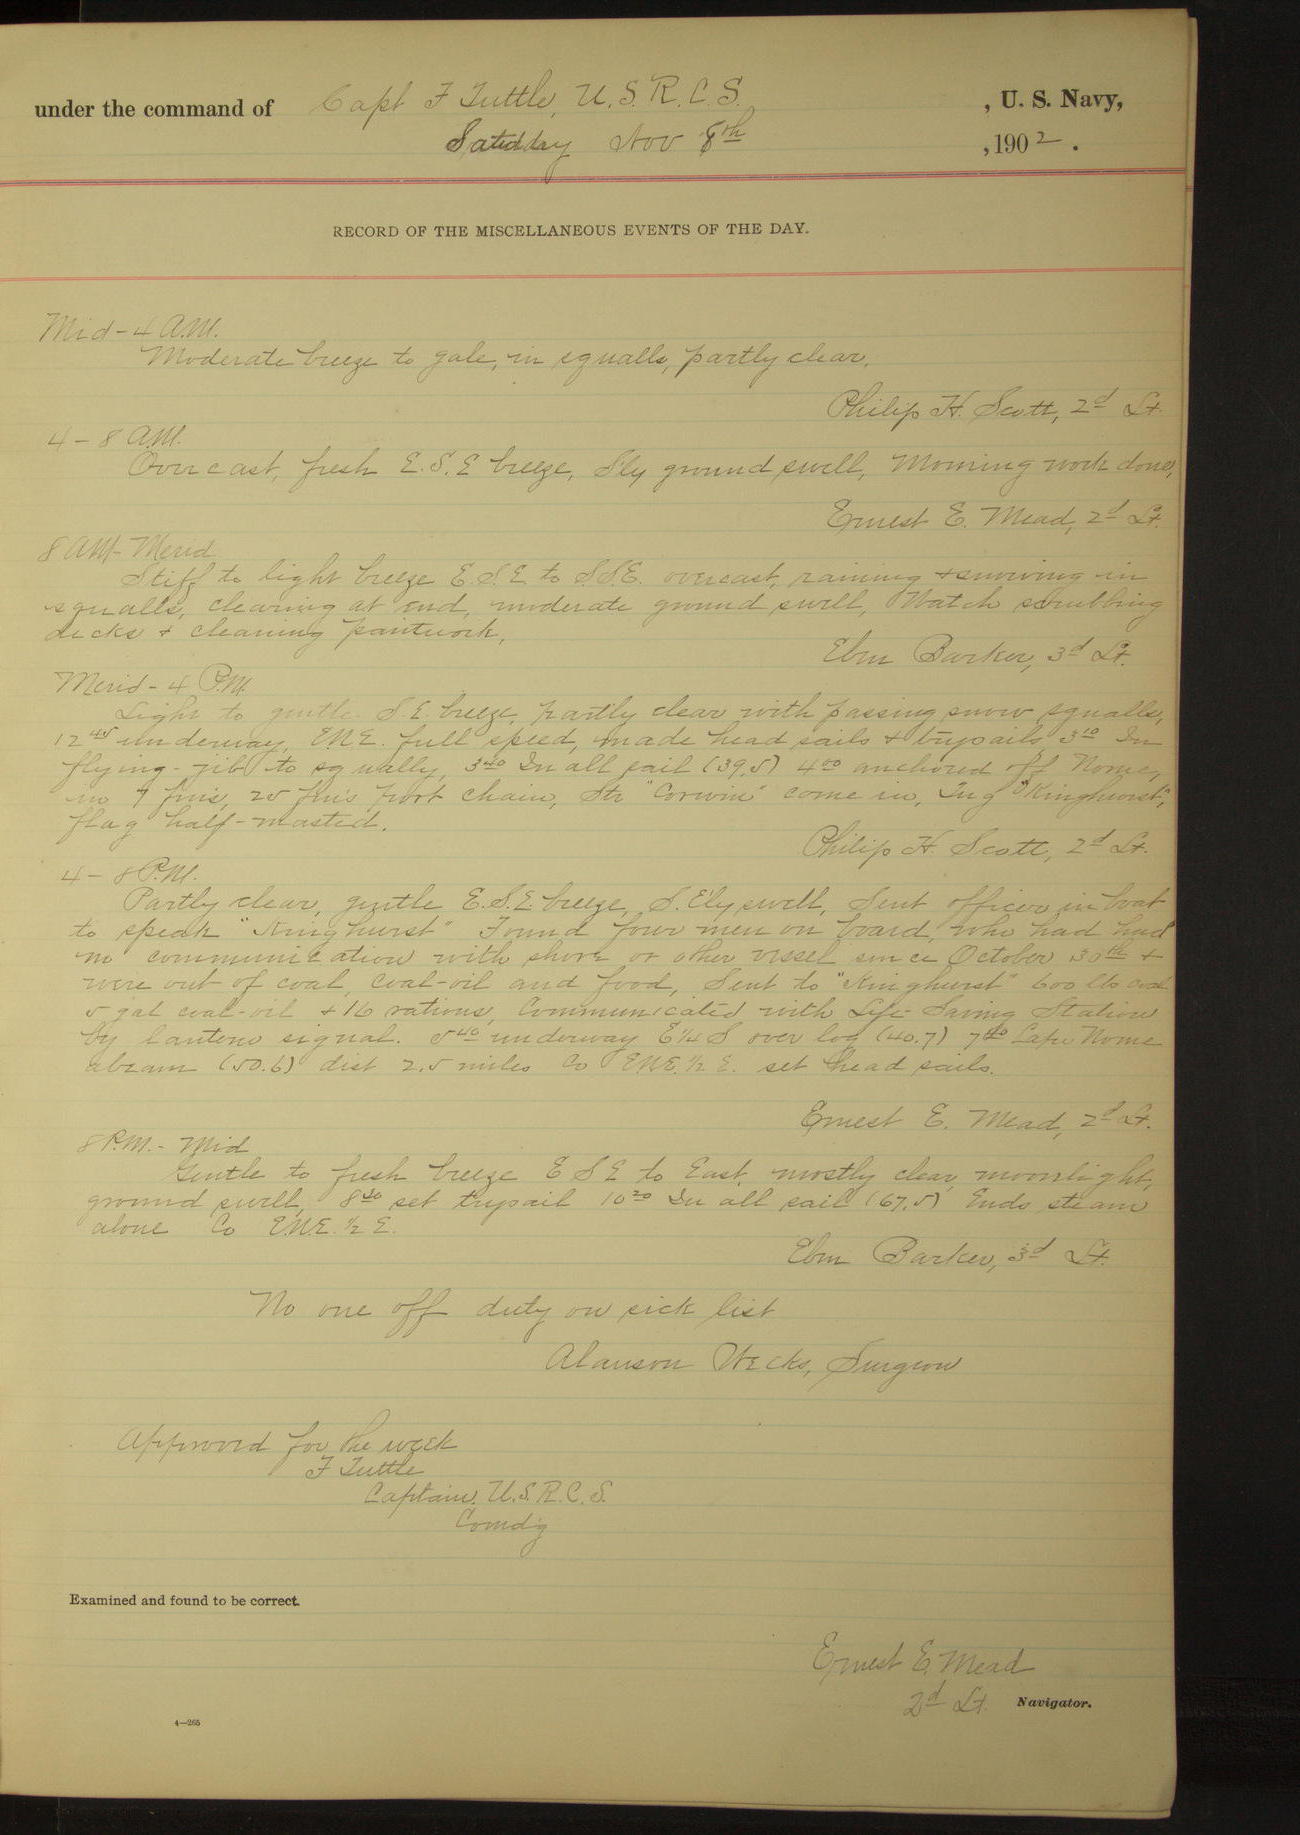 under the command of Capt F Tuttle, U.S.R.C.S. , U. S. Navy,
Saturday Nov 8th , 1902.
RECORD OF THE MISCELLANEOUS EVENTS OF THE DAY.
Mid - 4 A.M.
Moderate breeze to gale, in squalls, partly clear.
Philip H. Scott, 2d Lt.
4 - 8 A.M.
Overcast, fresh E.S.E breeze, S'ly ground swell, Morning work done,
Ernest E. Mead, 2d Lt.
8 AM - Merid
Stiff to light breeze E.S.E to S.S.E. overcast, raining & snowing in
squalls, clearing at end, moderate ground swell, Watch scrubbing
decks & cleaning paintwork,
Ebn Barker, 3d Lt.
Merid - 4 P.M.
Light to gentle S.E. breeze, partly clear with passing snow squalls,
12 45 underway, ENE. full speed, made head sails & trysails 3 10 In
flying-jib to squally, 3 40 In all sail (39.5) 4 00 anchored off Nome,
in 7 fms, 25 fms port chain, Str "Corwin" came in, Tug "Kinghurst",
flag half-masted.
Philip H. Scott, 2d Lt.
4 - 8 P.M.
Partly clear, gentle E.S.E breeze, S.E'ly swell, Sent officer in boat
to speak "Kinghurst" Found four men on board, who had had
no communication with shore or other vessel since October 30th &
were out of coal, coal-oil and food, Sent to "Kinghurst" 600 lbs coal
5 gal coal-oil & 16 rations, Communicated with Life-Saving Station
by lantern signal. 5 40 underway E 1/4 S over log (40.7) 7 40 Cape Nome
abeam (50.6) dist 2.5 miles Co ENE. 1/2 E. set head sails.
Ernest E. Mead, 2d Lt.
8 P.M. - Mid
Gentle to fresh breeze E S E to East, mostly clear, moonlight,
ground swell, 8 30 set trysail 10 20 In all sail (67.5) Ends steam
alone Co E.N.E. 1/2 E.
Ebn Barker, 3d Lt.
No one off duty on sick list
Alanson Weeks, Surgeon
Approved for the week
F Tuttle
Captain, U.S.R.C.S.
Comd'g
Examined and found to be correct.
Ernest E. Mead
2d Lt. Navigator.
4—265